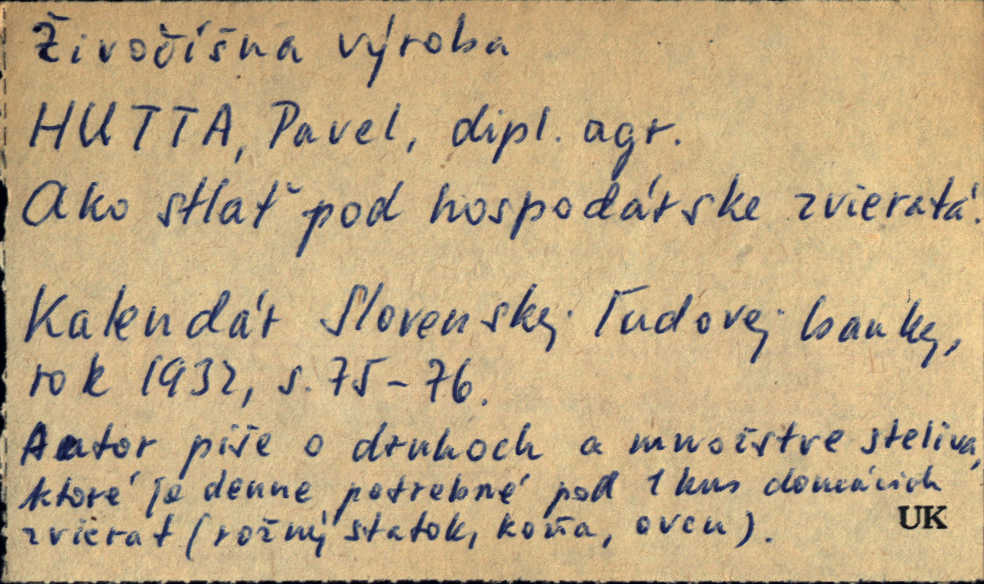 Živočíšna výroba
HUTTA, Pavel, dipl. agr.
Ako stlať pod hospodárske zvieratá.
Kalendár Slovenskej ľudovej banky,
rok 1932, s. 75-76.
Autor píše o druhoch a množstve steliva,
ktoré je denne potrebné pod 1 kus domácich
zvierat (rožný statok, koňa, ovcu).
UK